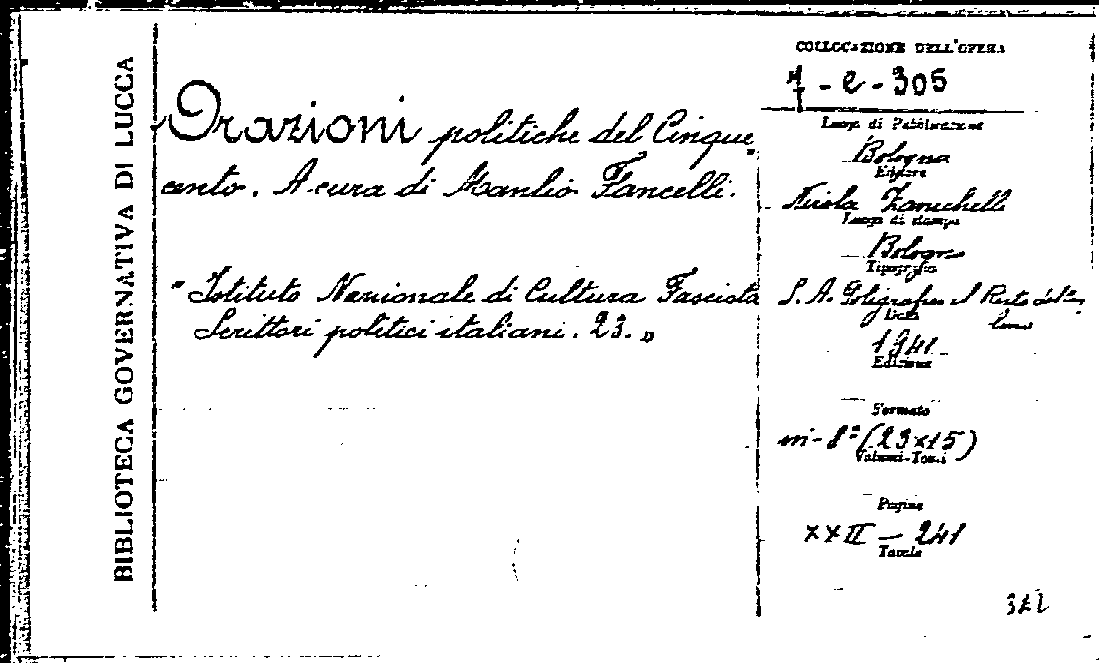 BIBLIOTECA GOVERNATIVA DI LUCCA
Orazioni politiche del Cinque
cento. A cura di Manlio Fancelli.
"Istituto Nazionale di Cultura Fascista
Scrittori politici italiani. 23."
COLLOCAZIONE DELL'OPERA
7-e-305
Luogo di Pubblicazione
Bologna
Editore
Nicola Zanichelli
Luogo di stampa
Bologna
Tipografia
S. A. Poligrafici il Resto del
Data
1941
Edizione
Formato
in-8° (23x15)
Volumi-Tomi
Pagine
XXII - 241
Tavole